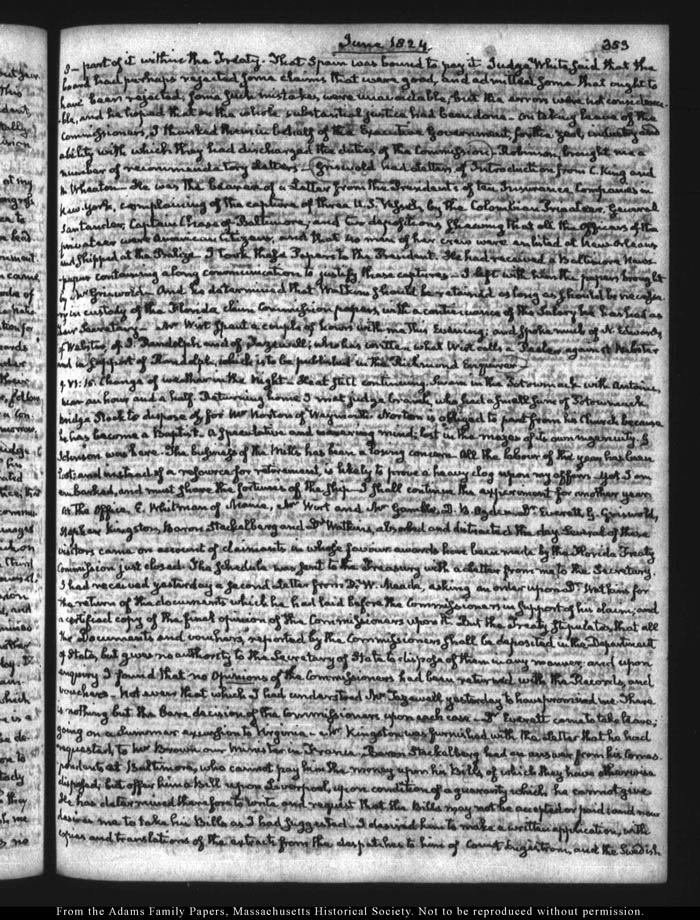 June 1824.
353
I — part of it within the Treaty. That Spain was bound to pay it. Judge White said that the
board had perhaps rejected some claims that were good, and admitted some that ought to
have been rejected; some such mistakes were unavoidable, but the errors were not considera-
-ble, and he hoped that on the whole substantial justice had been done. On taking leave of the
Commissioners, I thanked them in behalf of the Executive Government, for the zeal, industry and
ability with which they had discharged the duties of the Commission. Robinson brought me a
number of recommendatory Letters — Griswold had Letters of Introduction from C. King and
H. Wheaton. He was the bearer of a Letter from the Presidents of ten Insurance Companies in
New-York, complaining of the capture of three U.S. Vessels, by the Colombian Privateer, General
Santander, Captain Chase of Baltimore, and two depositions shewing that all the officers of the
privateer were American Citizens, and that men of her crew were enlisted at New-Orleans
and shipped at the Balize. I took these Papers to the President. He had received a Baltimore News-
-paper containing a long communication to justify these captures. I left with him the papers brought
by Mr Griswold. And he determined that Watkins should be retained as long as should be necessa-
ry in custody of the Florida claim Commission papers, with a continuance of the Salary he has had as
their Secretary. Mr Wirt spent a couple of hours with me this Evening; and spoke much of N. Edwards
of Webster, of J. Randolph and of Tazewell; who has written what Wirt calls a against Webster
and in support of Randolph, which is to be published in the Richmond Enquirer.
IV:15. Change of weather in the Night. Heat still continuing. Swam in the Potowmack with Antoine,
near an hour and a half. Returning home I met Judge Cranch, who had a small sum of Potowmack
bridge Stock to dispose of, for Mr Norton of Weymouth. Norton is obliged to part from his Church because
he has become a Baptist. A speculative and wavering mind: lost in the mazes of its own ingenuity. G.
Johnson was here. The business of the Mills has been a losing concern. All the labour of the year has been
lost; and instead of a resource for retirement is likely to prove a heavy clog upon my affairs. Yet I am
embarked, and must share the fortunes of the ship. I shall continue the experiment for another year.
At the Office, E. Whitman of Maine, Mr Wirt and Mr Gamble, D. B. Ogden, Dr Everett, G. Griswold,
Stephen Kingston, Baron Stackelberg and Dr Watkins, absorbed and distracted the day. Several of these
visitors came on account of claimants in whose favour awards have been made by the Florida Treaty
Commission just closed. The schedule was sent to the Treasury with a Letter from me to the Secretary.
I had received yesterday a second Letter from R. W. Meade, asking an order upon Dr Watkins for
the return of the documents which he had laid before the Commissioners in support of his claim; and
a certified copy of the final opinion of the Commissioners upon it. But the Treaty stipulates that all
the Documents and vouchers, reported by the Commissioners, shall be deposited in the Department
of State, but gives no authority to the Secretary of State to dispose of them in any manner, and upon
enquiry I found that no opinions of the Commissioners had been returned with the Records, and
vouchers. Not even that which I had understood Mr Tazewell yesterday to have promised me. There
is nothing but the bare decision of the Commissioners upon each case. Dr Everett came to take leave;
going on a Summer excursion to Virginia. Mr Kingston was furnished with the letter that he had
requested, to Mr Brown our Minister in France. Baron Stackelberg had an answer from his corres-
pondents at Baltimore, who cannot pay him the money upon his Bills, of which they have otherwise
disposed, but offer him a Bill upon Liverpool, upon condition of a guaranty which he cannot give
He has determined therefore to write and request that the Bills may not be accepted or paid; and now
desires me to take his Bills as I had suggested. I desired him to make a written application, with
copies and translations of the extracts from the despatches to him of Count Engestrom, and the Swedish
From the Adams Family Papers, Massachusetts Historical Society. Not to be reproduced without permission.